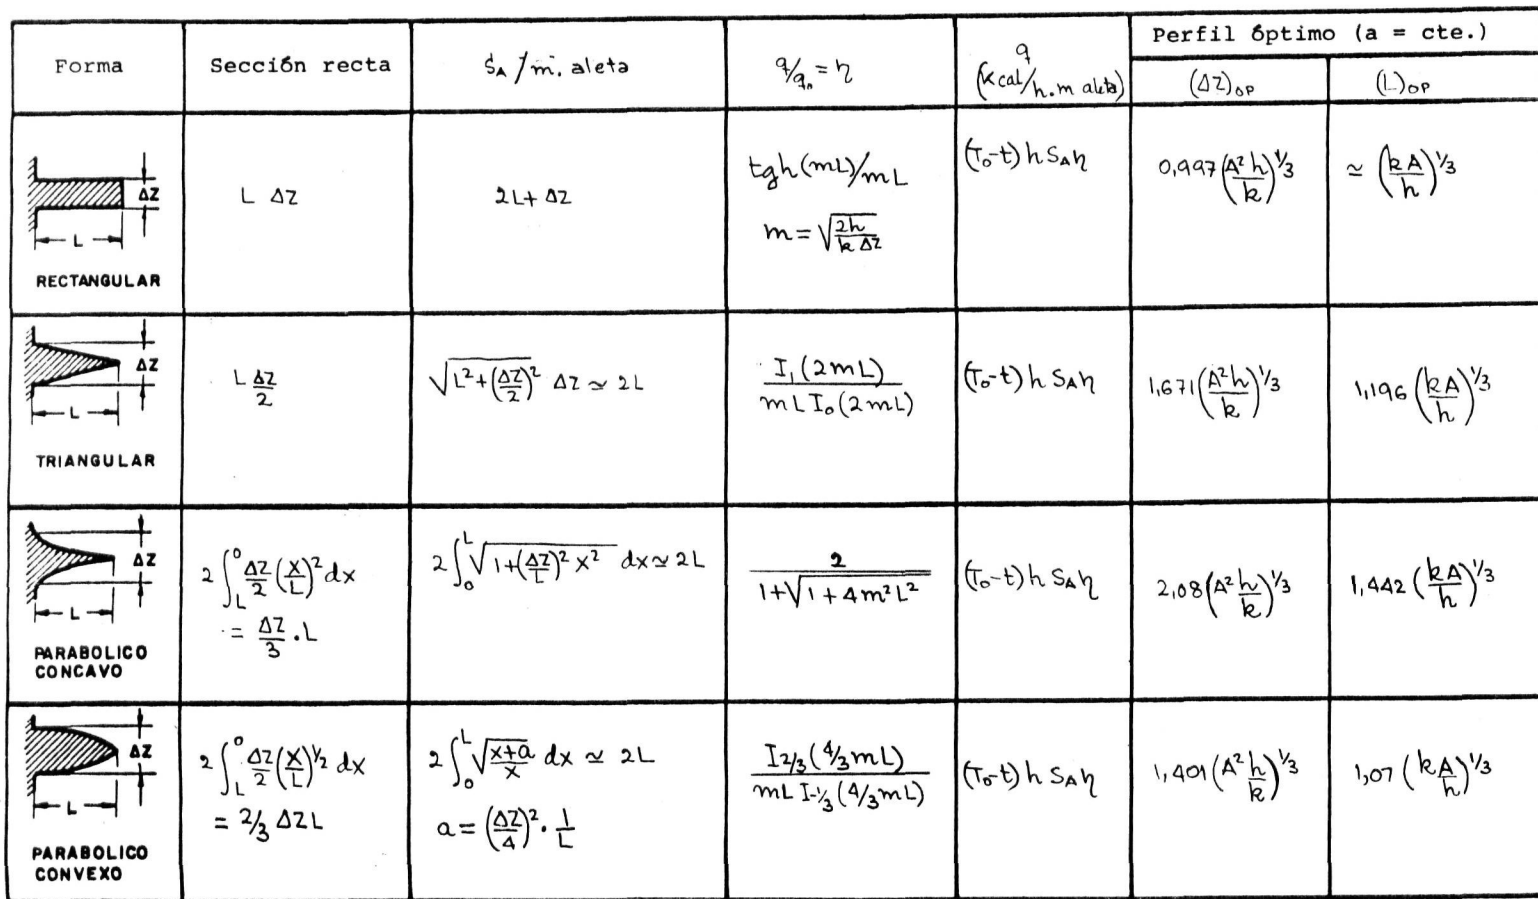 Forma
Sección recta
S_A / m. aleta
q/q_n = η
q
(kcal/h.m aleta)
Perfil óptimo (a = cte.)
(ΔZ)_OP
(L)_OP
ΔZ
L
RECTANGULAR
L ΔZ
2L + ΔZ
tgh(mL)/mL
m = √(2h/(k ΔZ))
(T₀-t) h S_A η
0,997 (A²h/k)^1/3
≃ (kA/h)^1/3
ΔZ
L
TRIANGULAR
L ΔZ/2
√(L² + (ΔZ/2)²) ΔZ ≃ 2L
I₁(2mL) / (mL I₀(2mL))
(T₀-t) h S_A η
1,671 (A²h/k)^1/3
1,196 (kA/h)^1/3
ΔZ
L
PARABOLICO
CONCAVO
2∫_L^0 ΔZ/2 (x/L)² dx
= ΔZ/3 . L
2∫_0^L √(1+(ΔZ/L)² x²) dx ≃ 2L
2 / (1+√(1+4m²L²))
(T₀-t) h S_A η
2,08 (A² h/k)^1/3
1,442 (kA/h)^1/3
ΔZ
L
PARABOLICO
CONVEXO
2∫_L^0 ΔZ/2 (x/L)^1/2 dx
= 2/3 ΔZ L
2∫_0^L √((x+a)/x) dx ≃ 2L
a = (ΔZ/4)² . 1/L
I_2/3(4/3 mL) / (mL I_-1/3(4/3 mL))
(T₀-t) h S_A η
1,401 (A² h/k)^1/3
1,07 (kA/h)^1/3